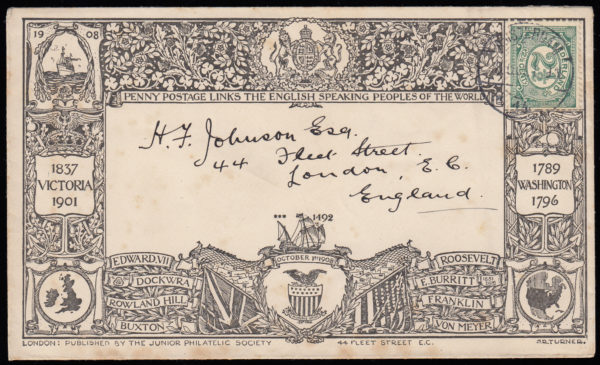 1908
PENNY POSTAGE LINKS THE ENGLISH SPEAKING PEOPLES OF THE WORLD
H. F. Johnson Esq.
44 Fleet Street.
London, E. C.
England.
1837
VICTORIA
1901
1789
WASHINGTON
1796
1492
OCTOBER 1st 1908
EDWARD.VII
DOCKWRA
ROWLAND HILL
BUXTON
ROOSEVELT
E. BURRITT
FRANKLIN
VON MEYER
LONDON: PUBLISHED BY THE JUNIOR PHILATELIC SOCIETY 44 FLEET STREET E.C. P.R.TURNER.